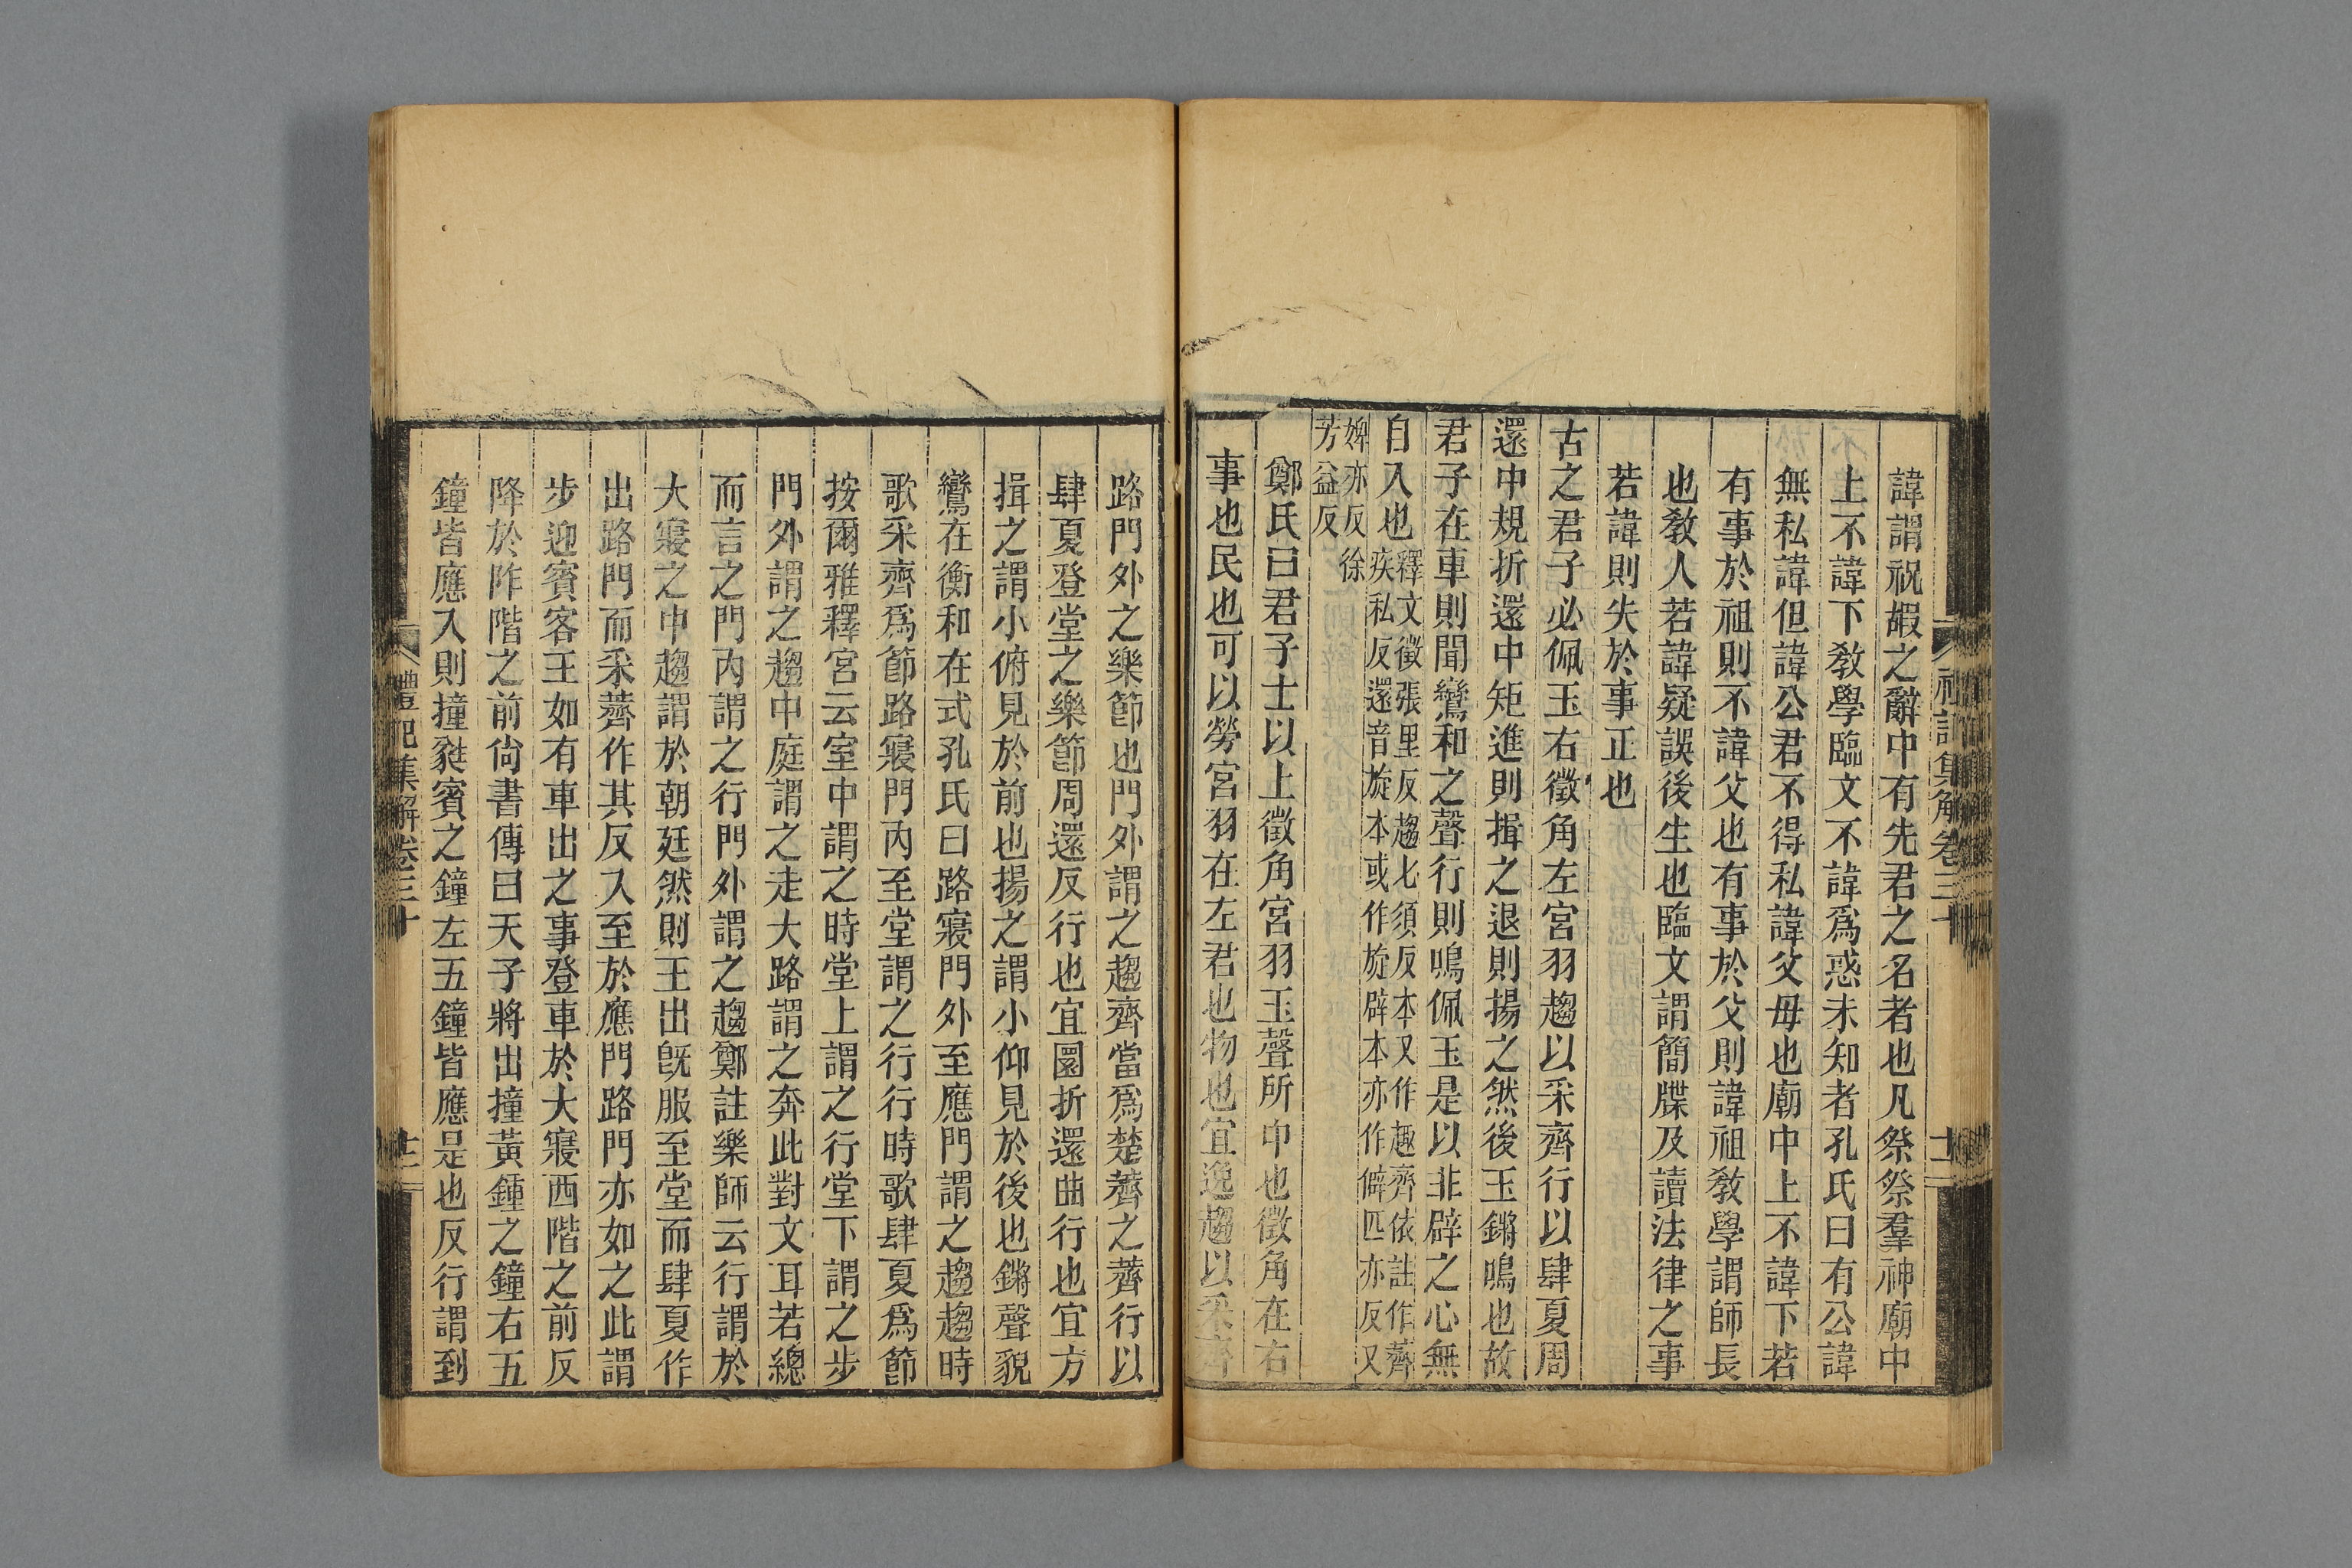 諱謂祝嘏之辭中有先君之名者也凡祭祭羣神廟中
上不諱下敎學臨文不諱爲惑未知者孔氏曰有公諱
無私諱但諱公君不得私諱父母也廟中上不諱下若
有事於祖則不諱父也有事於父則諱祖敎學謂師長
也敎人若諱疑誤後生也臨文謂簡牒及讀法律之事
若諱則失於事正也
古之君子必佩玉右徵角左宮羽趨以采齊行以肆夏周
還中規折還中矩進則揖之退則揚之然後玉鏘鳴也故
君子在車則聞鸞和之聲行則鳴佩玉是以非辟之心無
自入也
釋文徵張里反趨七須反本又作趣齊依註作薺
疾私反還音旋本或作旋辟本亦作僻匹亦反又
婢亦反徐
芳益反
鄭氏曰君子士以上徵角宮羽玉聲所中也徵角在右
事也民也可以勞宮羽在左君也物也宜逸趨以采齊
禮記集解卷三十
路門外之樂節也門外謂之趨齊當爲楚薺之薺行以
肆夏登堂之樂節周還反行也宜圜折還曲行也宜方
揖之謂小俯見於前也揚之謂小仰見於後也鏘聲貌
鸞在衡和在式孔氏曰路寢門外至應門謂之趨趨時
歌采齊爲節路寢門內至堂謂之行行時歌肆夏爲節
按爾雅釋宮云室中謂之時堂上謂之行堂下謂之步
門外謂之趨中庭謂之走大路謂之奔此對文耳若總
而言之門內謂之行門外謂之趨鄭註樂師云行謂於
大寢之中趨謂於朝廷然則王出旣服至堂而肆夏作
出路門而采薺作其反入至於應門路門亦如之此謂
步迎賓客王如有車出之事登車於大寢西階之前反
降於阼階之前尙書傳曰天子將出撞黃鍾之鐘右五
鐘皆應入則撞蕤賓之鐘左五鐘皆應是也反行謂到
禮記集解卷三十